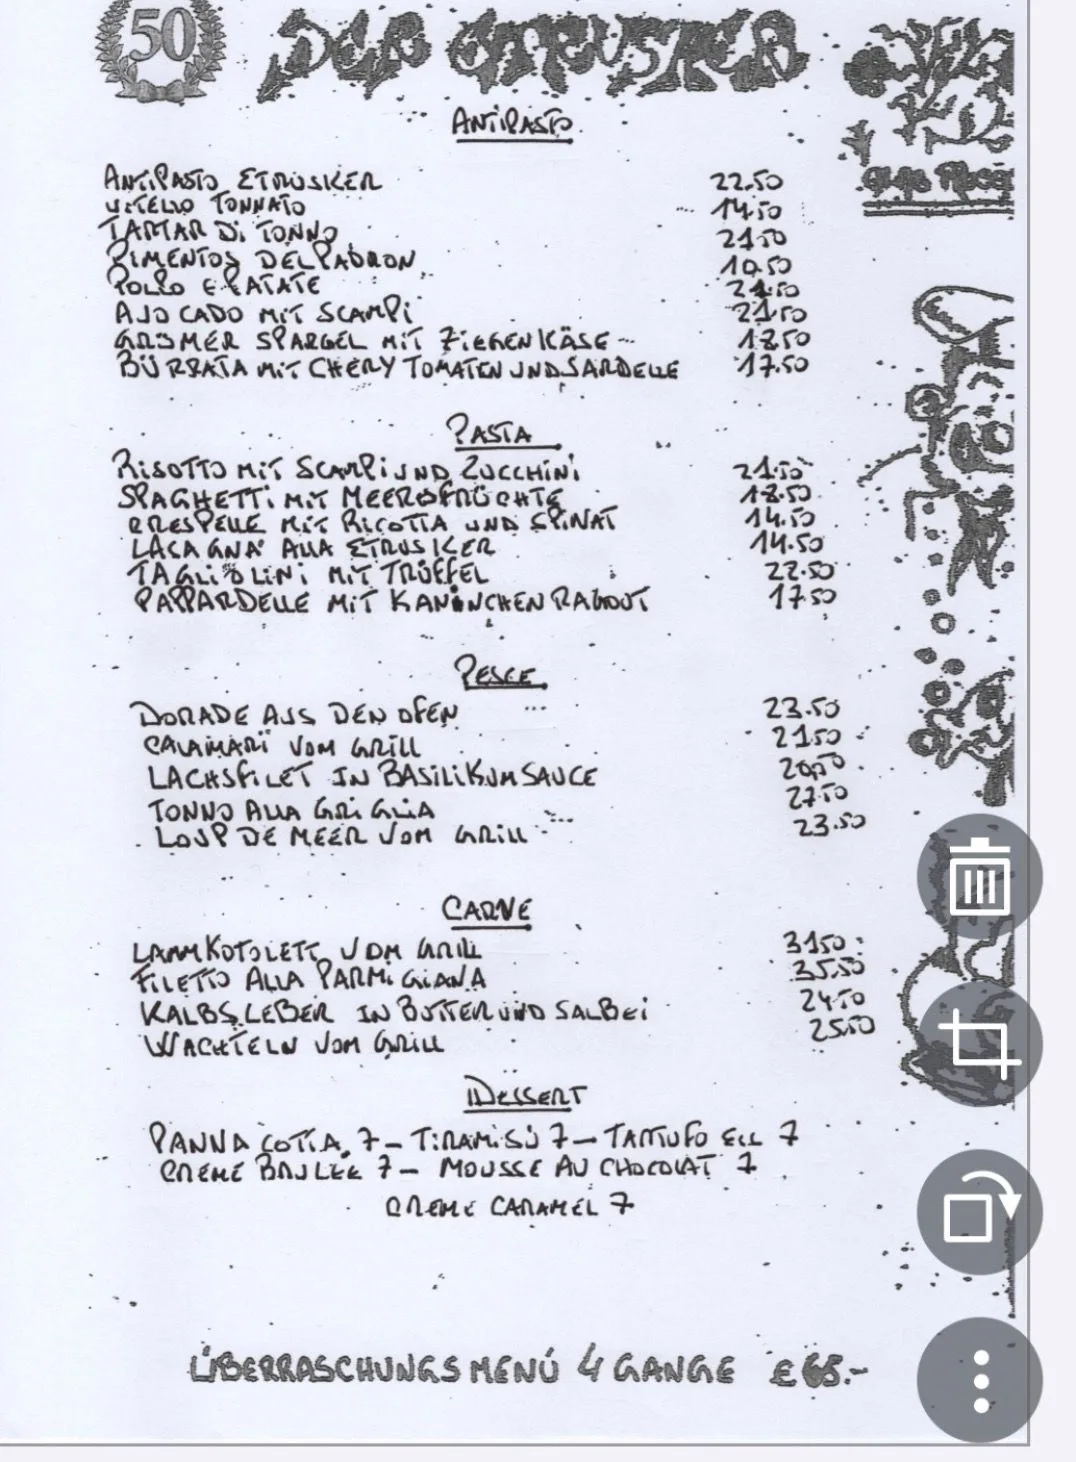 50 DER ETRUSKER
ANTIPASTO
ANTIPASTO ETRUSKER 22.50
VITELLO TONNATO 14.50
TARTAR Di TONNO 21.50
PIMENTOS DEL PADRON 10.50
POLLO E PATATE 21.50
AJO CADO MiT SCAMPi 21.50
GRÜMER SPARGEL MiT ZiEGENKÄSE 18.50
BÜRRATA MiT CHERY TOMATEN UND SARDELLE 17.50
PASTA
RiSOTTO MiT SCAMPi UND ZUCCHiNi 21.50
SPAGHETTi MiT MEERESFRÜCHTE 18.50
CRESPELLE MiT RiCOTTA UND SPiNAT 14.50
LASAGNA' ALLA ETRUSKER 14.50
TAGLiOLiNi MiT TRÜFFEL 22.50
PAPPARDELLE MiT KANiNCHEN RAGOUT 17.50
PESCE
DORADE AUS DEN OFEN 23.50
CALAMARi VOM GRiLL 21.50
LACHSFiLET IN BASiLiKUM SAUCE 20,50
TONNO ALLA GRiGLiA 27.50
LOUP DE MEER VOM GRiLL 23.50
CARNE
LAMMKOTOLETT VOM GRiLL 31.50
FiLETTO ALLA PARMiGiANA 35.50
KALBSLEBER IN BUTTER UND SALBEi 24.50
WACHTELN VOM GRiLL 25.50
DESSERT
PANNA COTTA 7 – TiRAMiSÙ 7 – TARTUFO EiS 7
CREME BRULÉE 7 – MOUSSE AU CHOCOLAT 7
CREME CARAMEL 7
ÜBERRASCHUNGSMENÚ 4 GANGE £ 68.-